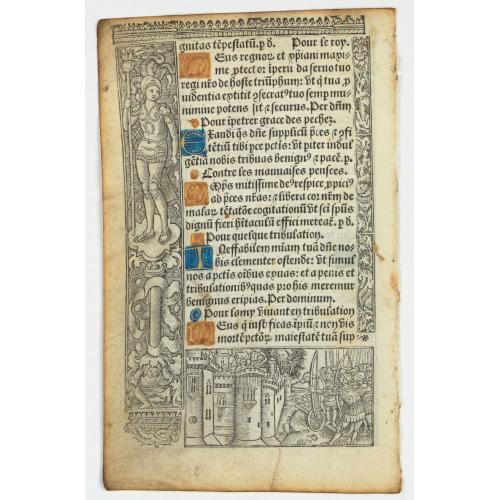 gnitas tēpestatū. p d. Pour le roy.
Eus regnoꝝ et xp̄iani maxi-
me ꝓtectoꝛ īperii da seruo tuo
regi nr̄o de hoste triūphum: vt q̇ tua ꝓ
uidentia exptitit ⁊secratꝰ tuo semp mu
nimine potens sit ⁊ securus. Per dn̄m
Pour īpetrer grace des pechez.
Exandi q̄s dn̄e suppliciū p̄ces ⁊ ꝯfi
tētiū tibi ꝑce pctīs: vt piter indul
gētiā nobis tribuas benignꝰ ⁊ pacē. p.
Contre les mauuaises pensees.
Mp̄s mitissime deꝰ respice ꝓpiciꝰ
ad p̄ces nr̄as: ⁊ libera coꝛ nr̄m de
malaꝝ tētatōe cogitationū vt sci sp̄us
dignū fieri hītaculū effici mereat̄. p d.
Pour quelque tribulation.
Neffabilem mīam tuā dn̄e no-
bis clementer ostende: vt simul
nos a pctīs oībus exuas: et a penis et
tribulationibꝰ quas pro his meremur
benignus eripias. Per dominum.
Pour lamy viuant en tribulation
Eus q̇ iustificas īpiū ⁊ nō vis
moꝛtē pctōꝝ maiestatē tuā sup